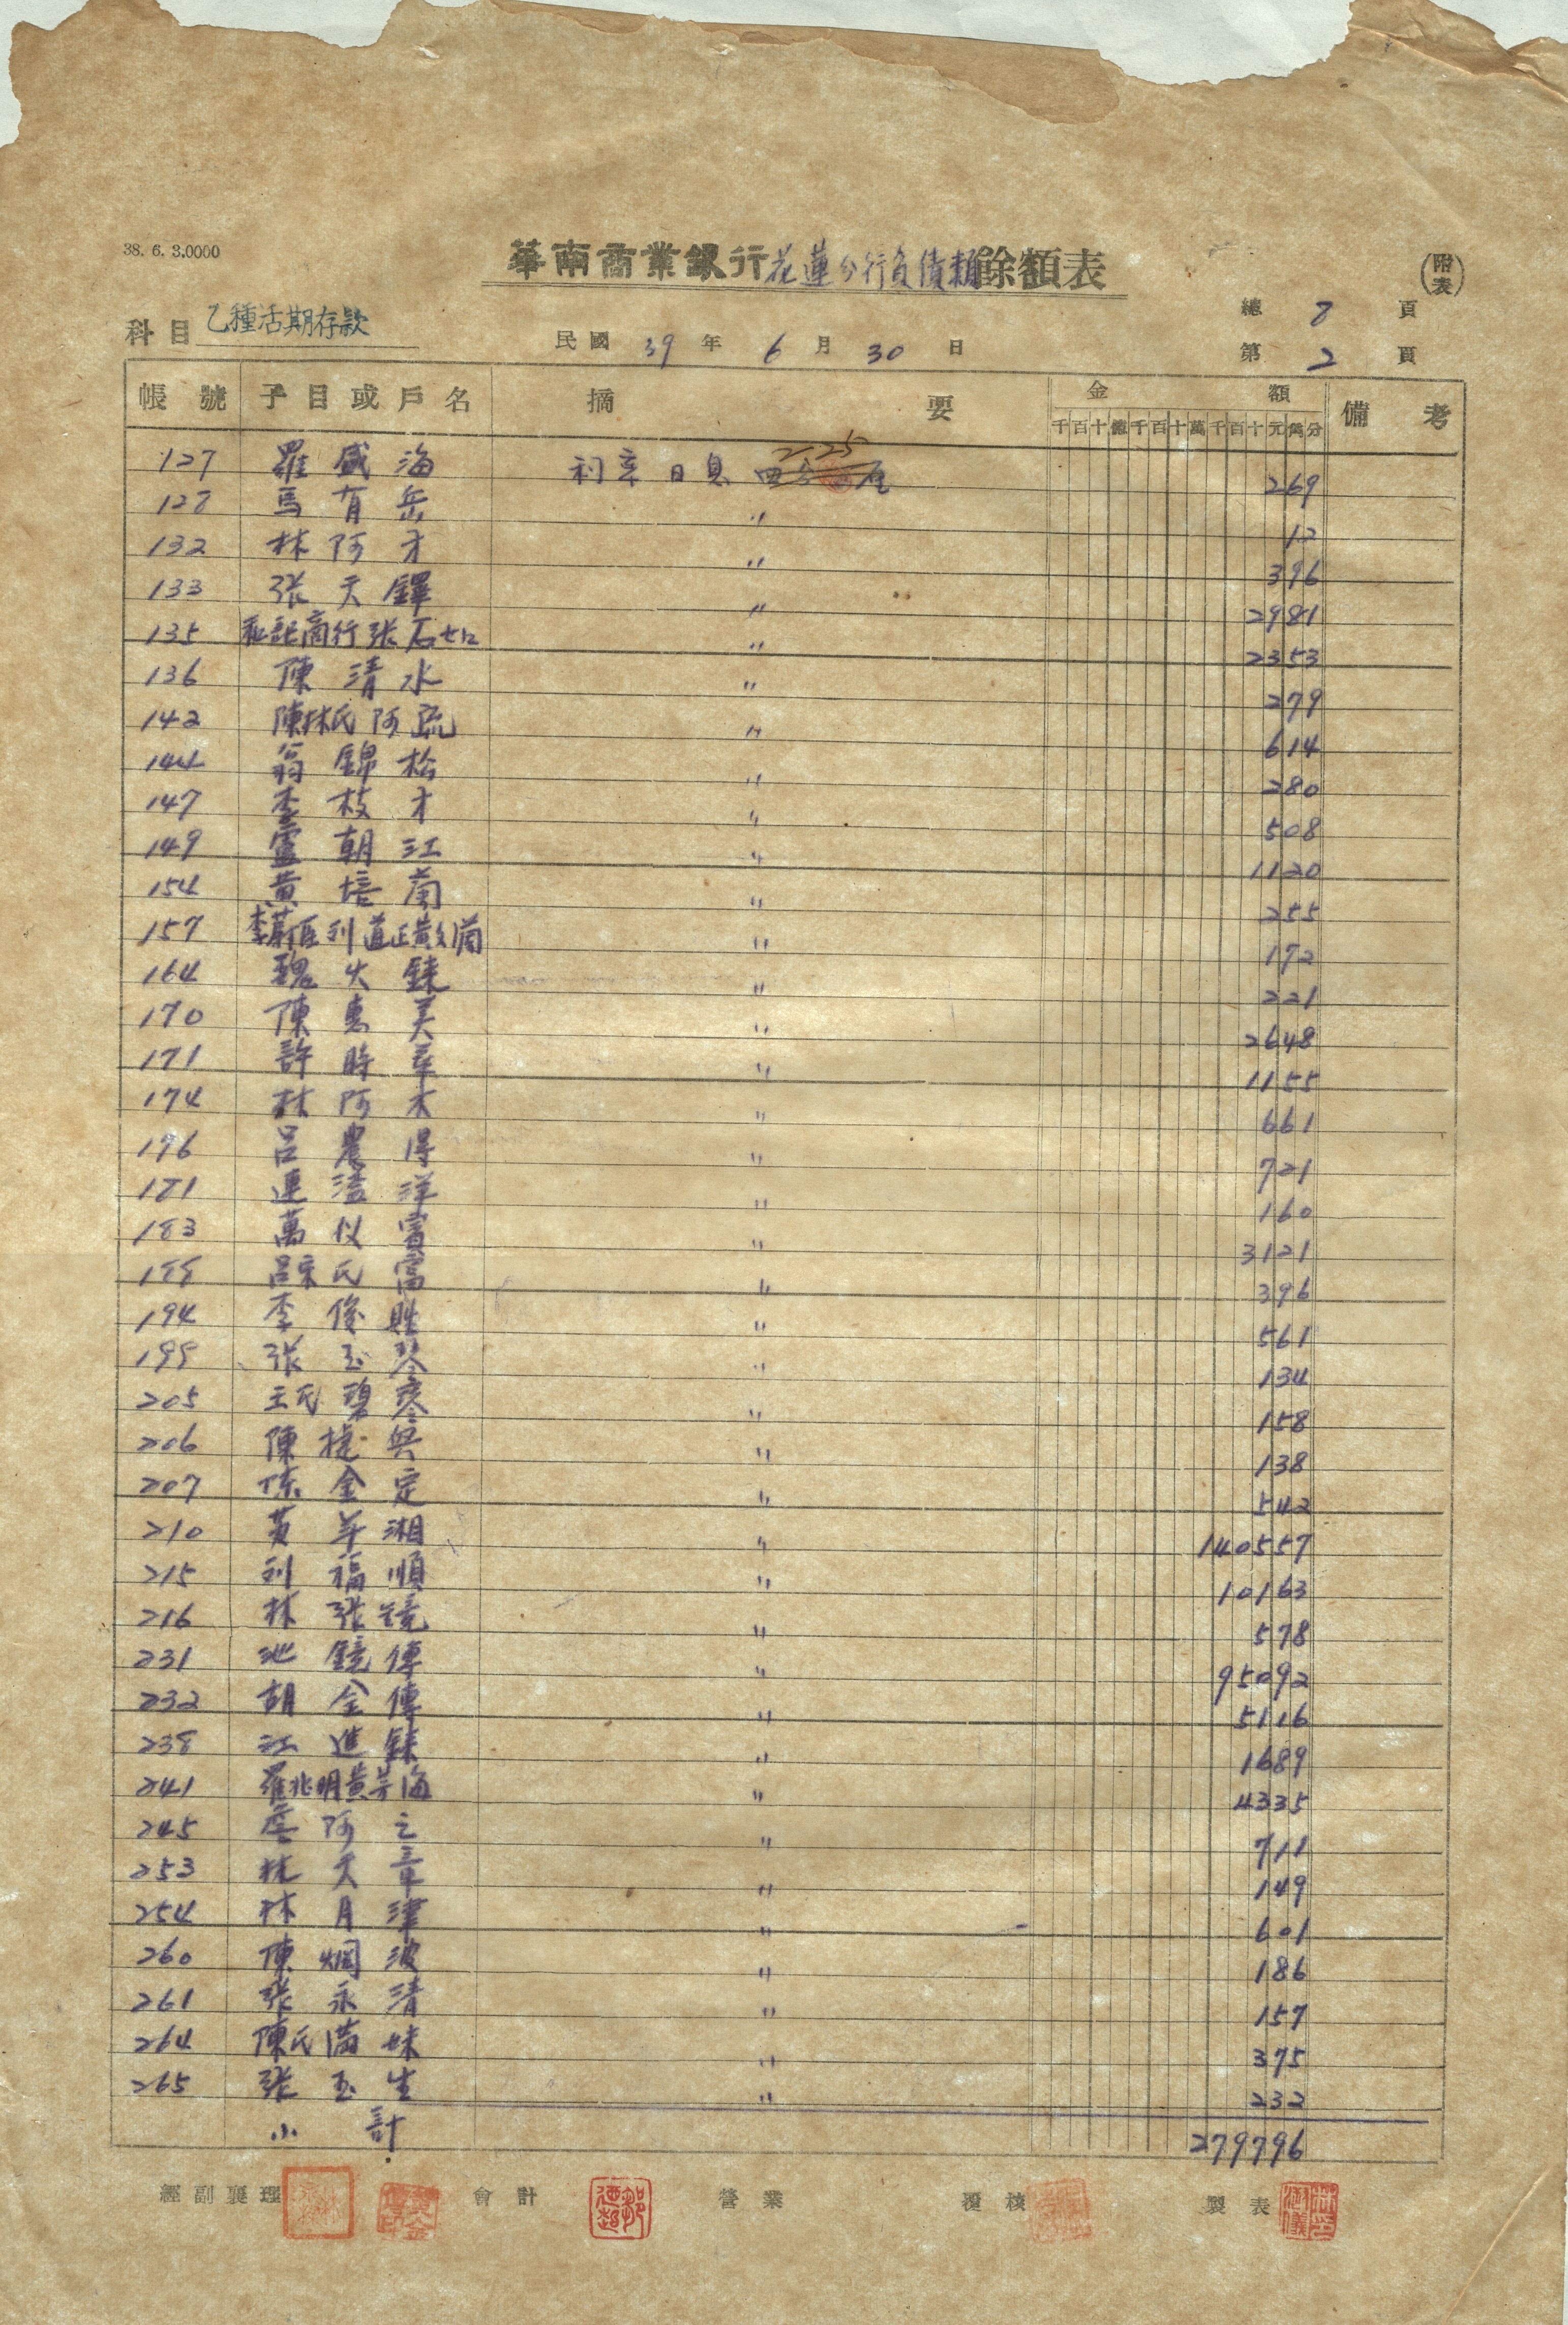 38. 6. 3.0000
華南商業銀行花蓮分行負債類餘額表
(附表)
科目 乙種活期存款
民國 39 年 6 月 30 日
總 8 頁
第 2 頁
帳號 子目或戶名 摘要 金額 備考
千百十億千百十萬千百十元角分
2.25
127 羅盛海 利率日息 四 厘 269
128 馬有岳 〃 12
132 林阿才 〃 396
133 張天鐸 〃 2981
135 商行張石 〃 2353
136 陳清水 〃 279
142 陳林氏阿疏 〃 614
144 翁錦松 〃 280
147 李枝才 〃 508
149 盧朝江 〃 1120
154 黃培蘭 〃 255
157 〃 172
164 魏火錸 〃 221
170 陳惠美 〃 2648
171 許時華 〃 1155
174 林阿木 〃 661
176 呂農得 〃 721
181 連溢洋 〃 160
183 萬仪賓 〃 3121
188 呂宋氏富 〃 396
194 李俊 〃 561
199 張玉琴 〃 134
205 王氏碧琴 〃 158
206 陳捷興 〃 138
207 陳金定 〃 542
210 黃羊湘 〃 140557
215 利福順 〃 10163
216 林張鏡 〃 578
231 池鏡傳 〃 95092
232 胡金傳 〃 5116
238 江進錸 〃 1689
241 羅兆明黃芳海 〃 4335
245 詹阿之 〃 711
253 林天章 〃 149
254 林月津 〃 601
260 陳烟波 〃 186
261 張永清 〃 157
264 陳氏滿妹 〃 375
265 張玉生 〃 232
小計 279796
經副襄理 會計 營業 覆核 製表